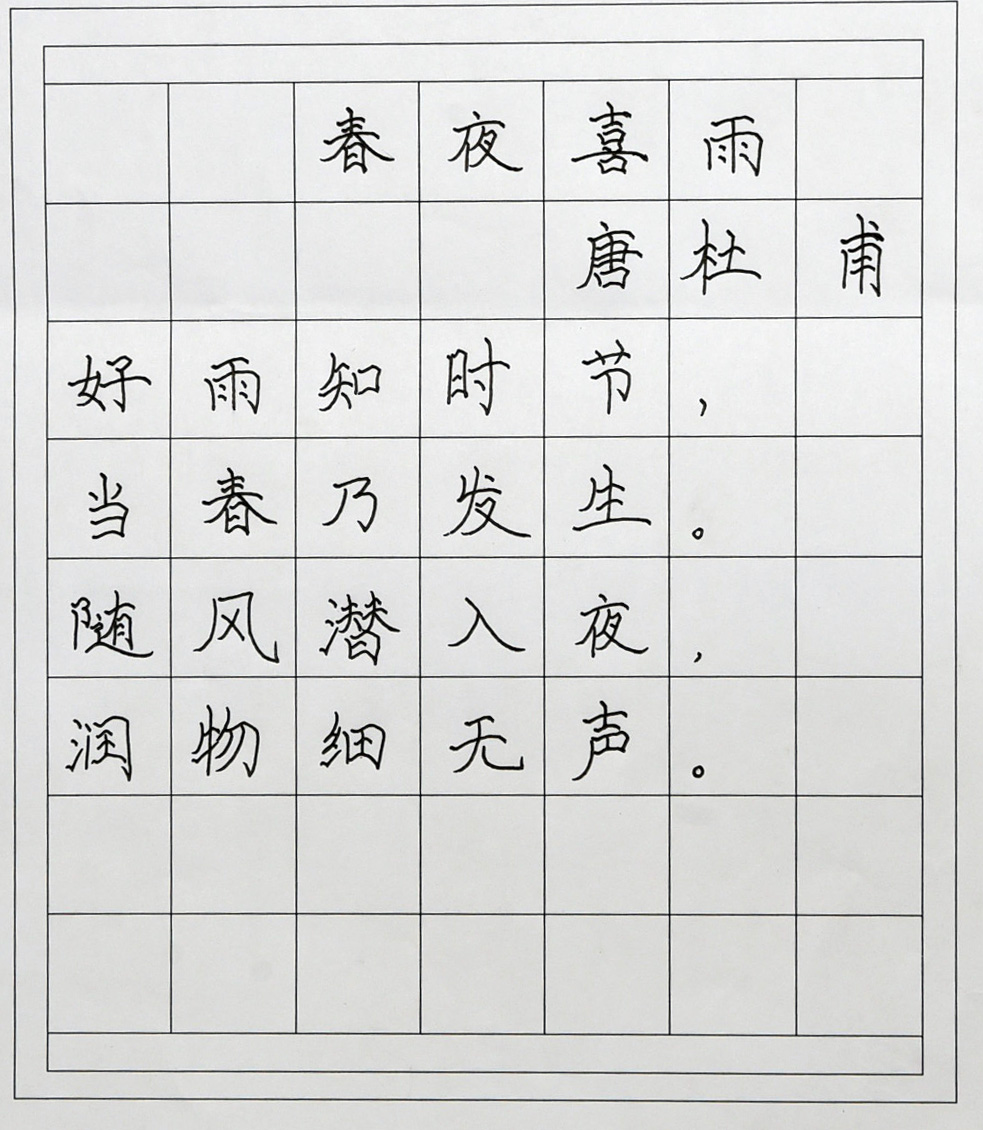 春夜喜雨
唐杜甫
好雨知时节，
当春乃发生。
随风潜入夜，
润物细无声。